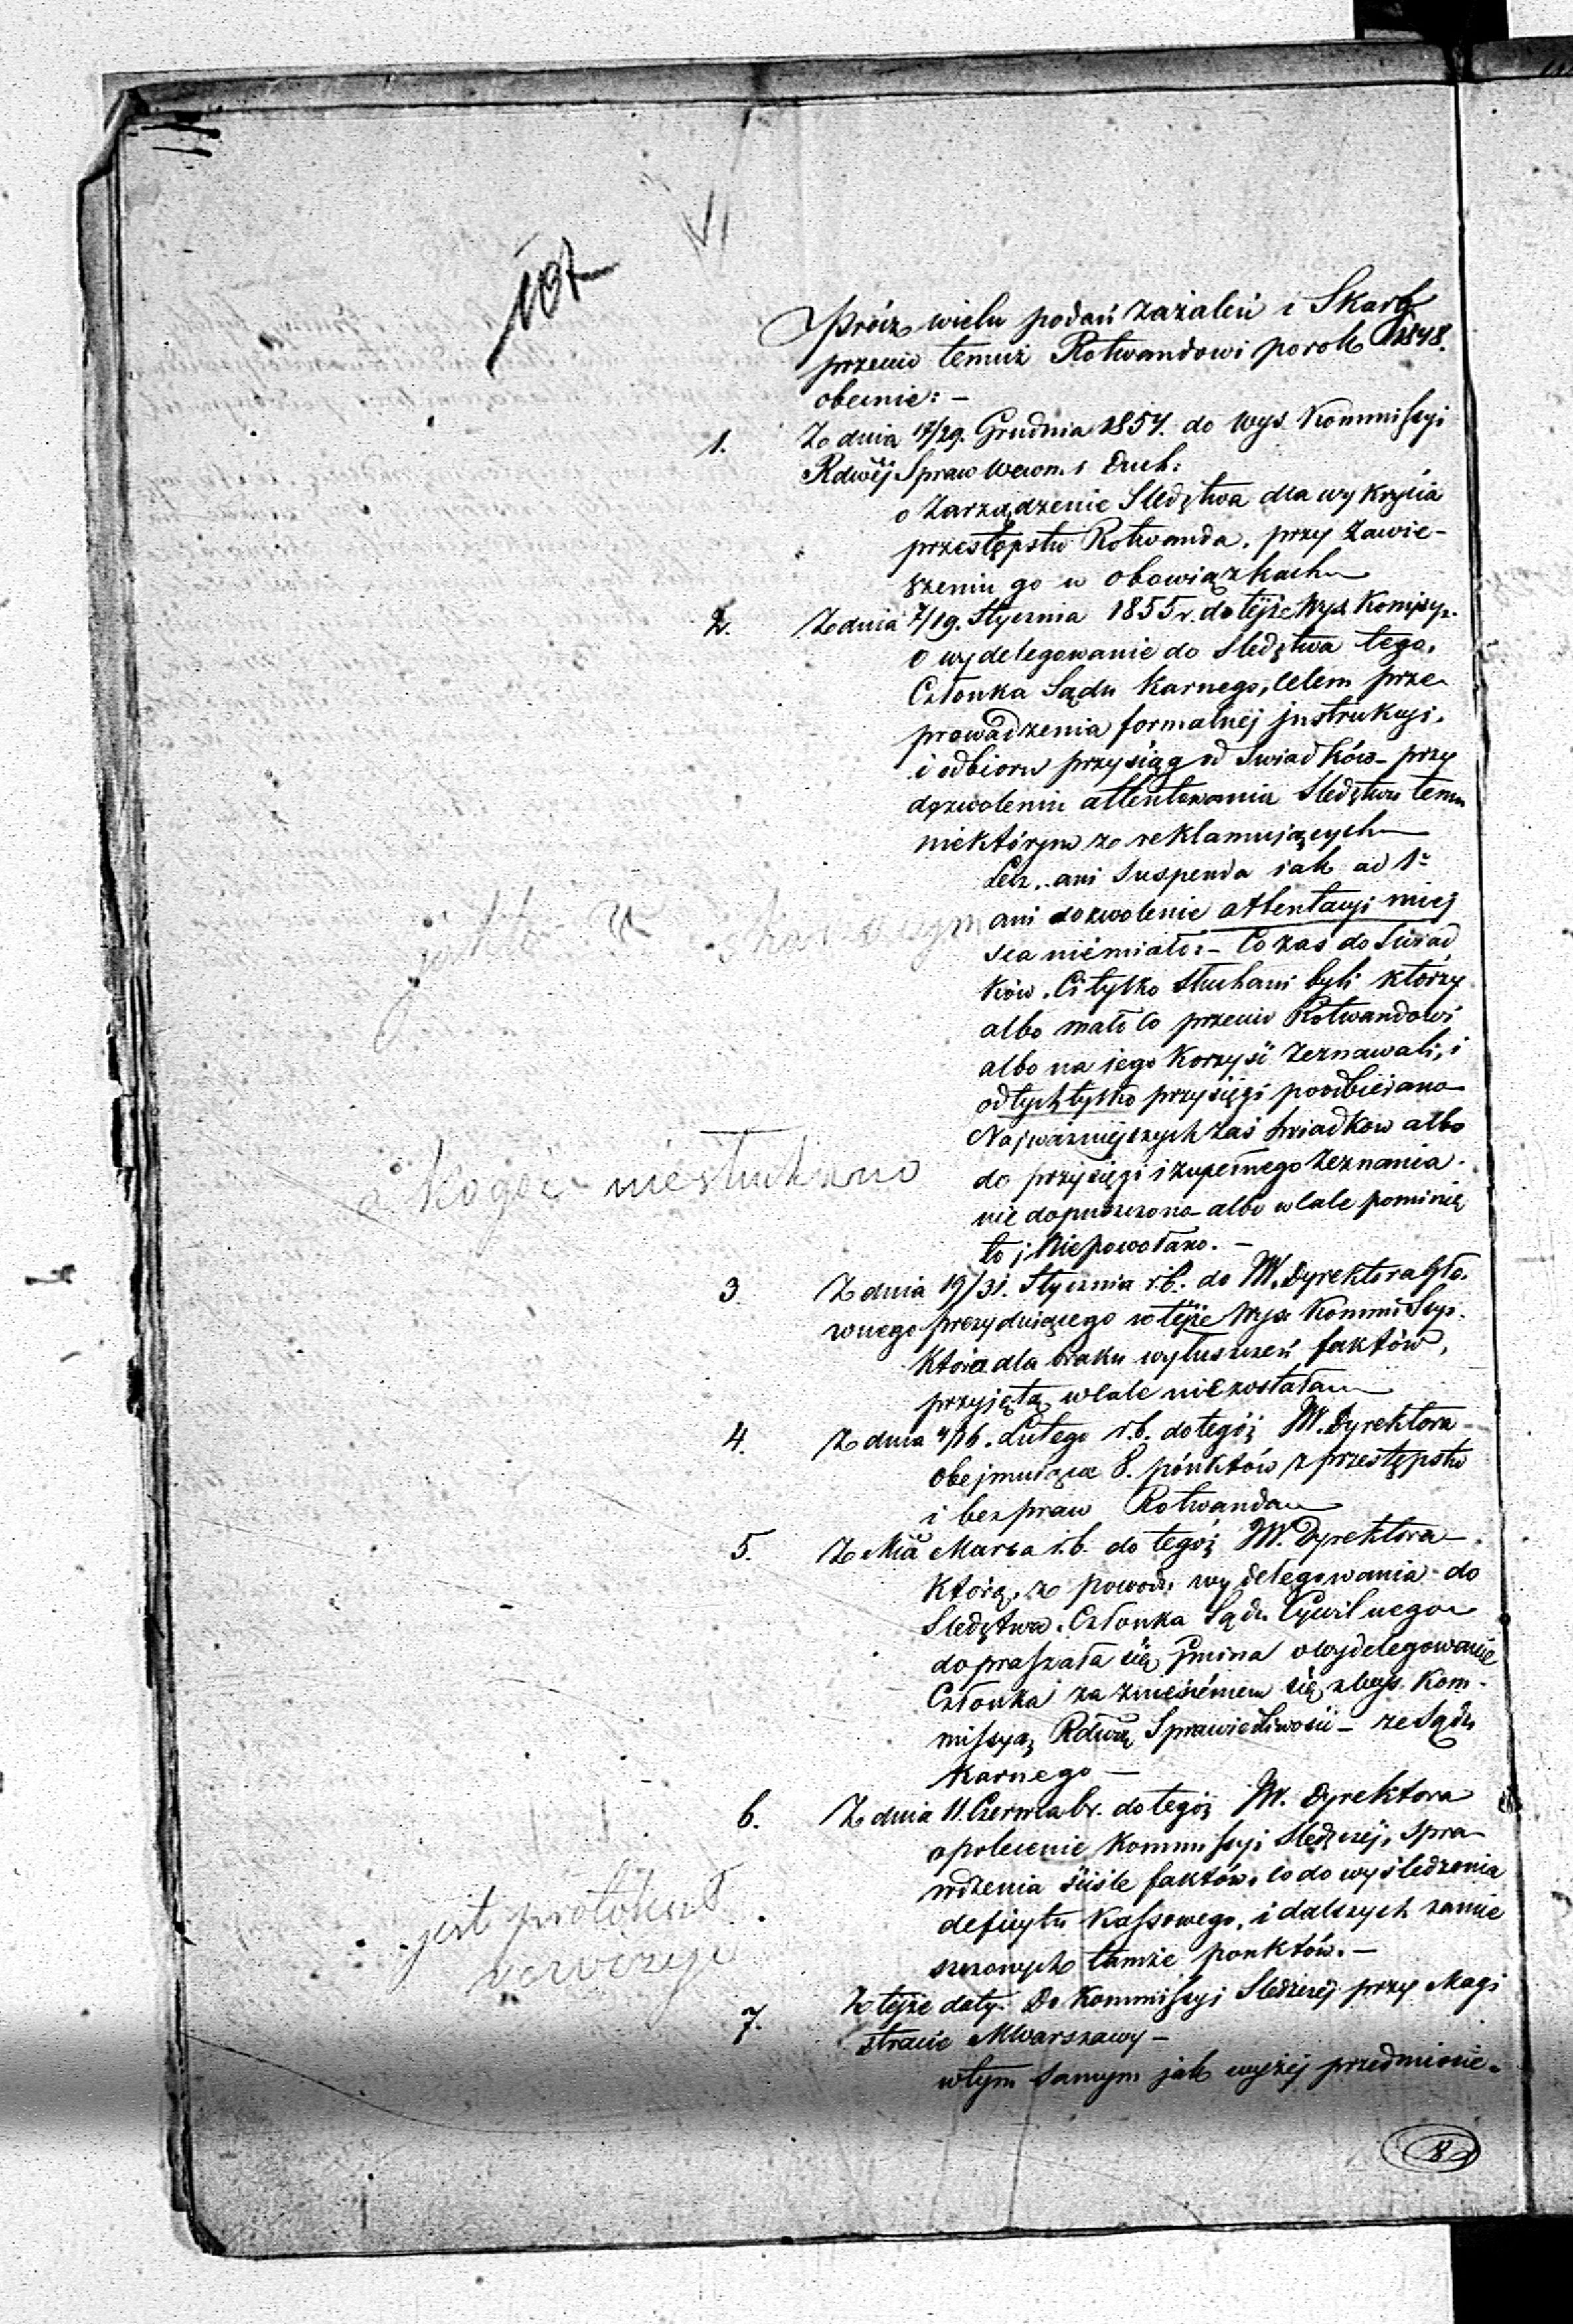 107
Prócz wielu podań zażaleń i Skarg
przeciw temuż Rotwandowi po rok 1848.
obecnie: –
1. Z dnia 17/29. Grudnia 1854. do Wys. Kommissyi
Rdwéj Spraw Wewn. i Duch:
o Zarządzenie Sledztwa dla wykrycia
przestępstw Rotwanda, przy Zawie-
szeniu go w obowiązkach
2. Z dnia 7/19. Stycznia 1855 r. do tejże Wys. Komisyi.
o wydelegowanie do Sledztwa tego,
Członka Sądu Karnego, celem prze
prowadzenia formalnéj jnstrukcyi,
i odbioru przysiąg od Swiadków – przy
dozwoleniu attentowania Sledztwu temu
niektórym z reklamujących
Lecz, ani Suspensa jak ad 1º
ani dozwolenie attentacyi miej
sca niemiało: – Co zas do Swiad
ków. Ci tylko słuchani byli którzy
albo mało co przeciw Rotwandowi
albo na jego Korzyść Zeznawali, i
od tych tylko przysięgi poodbierano
Najważniejszych zaś swiadków albo
do przysięgi i zupełnego Zeznania
nie dopuszczono albo wcale pominię
to j Niepowołano. –
a kogoż niesłuchano
3 Z dnia 19/31. Stycznia r.b. do JW. Dyrektora Głó.
wnego prezyduiącego w tejże Wys. Kommissyi.
która dla braku wyłuszczeń faktów,
przyjętą wcale niezostała
4. Z dnia 4/16. Lutego r.b. do tegóż JW. Dyrektora
obejmuiąca 8. pónktów z przestępstw
i bezpraw Rotwanda
5. Z Mca Marca r.b. do tegóż JW. Dyrektora
którą, z powodu wydelegowania do
Sledztwa, Członka Sądu Cywilnego
dopraszała się Gmina o wydelegowanie
Członka za zniesieniem się z Wys. Kom-
missyą Rdwą Sprawiedliwości – ze Sądu
Karnego –
6. Z dnia 11. Czerwca br. do tegóż JW. Dyrektora
o polecenie Kommissyi Sledczej, spra
wdzenia ściśle faktów, co do wyśledzenia
deficytu Kassowego, i dalszych zamie
szczonych tamże ponktów. –
jest protokuł
7. Z tejże daty. Do Kommissyi Sledczej przy Magi
stracie MWarszawy –
w tym samym jak wyżej przedmiocie.
8